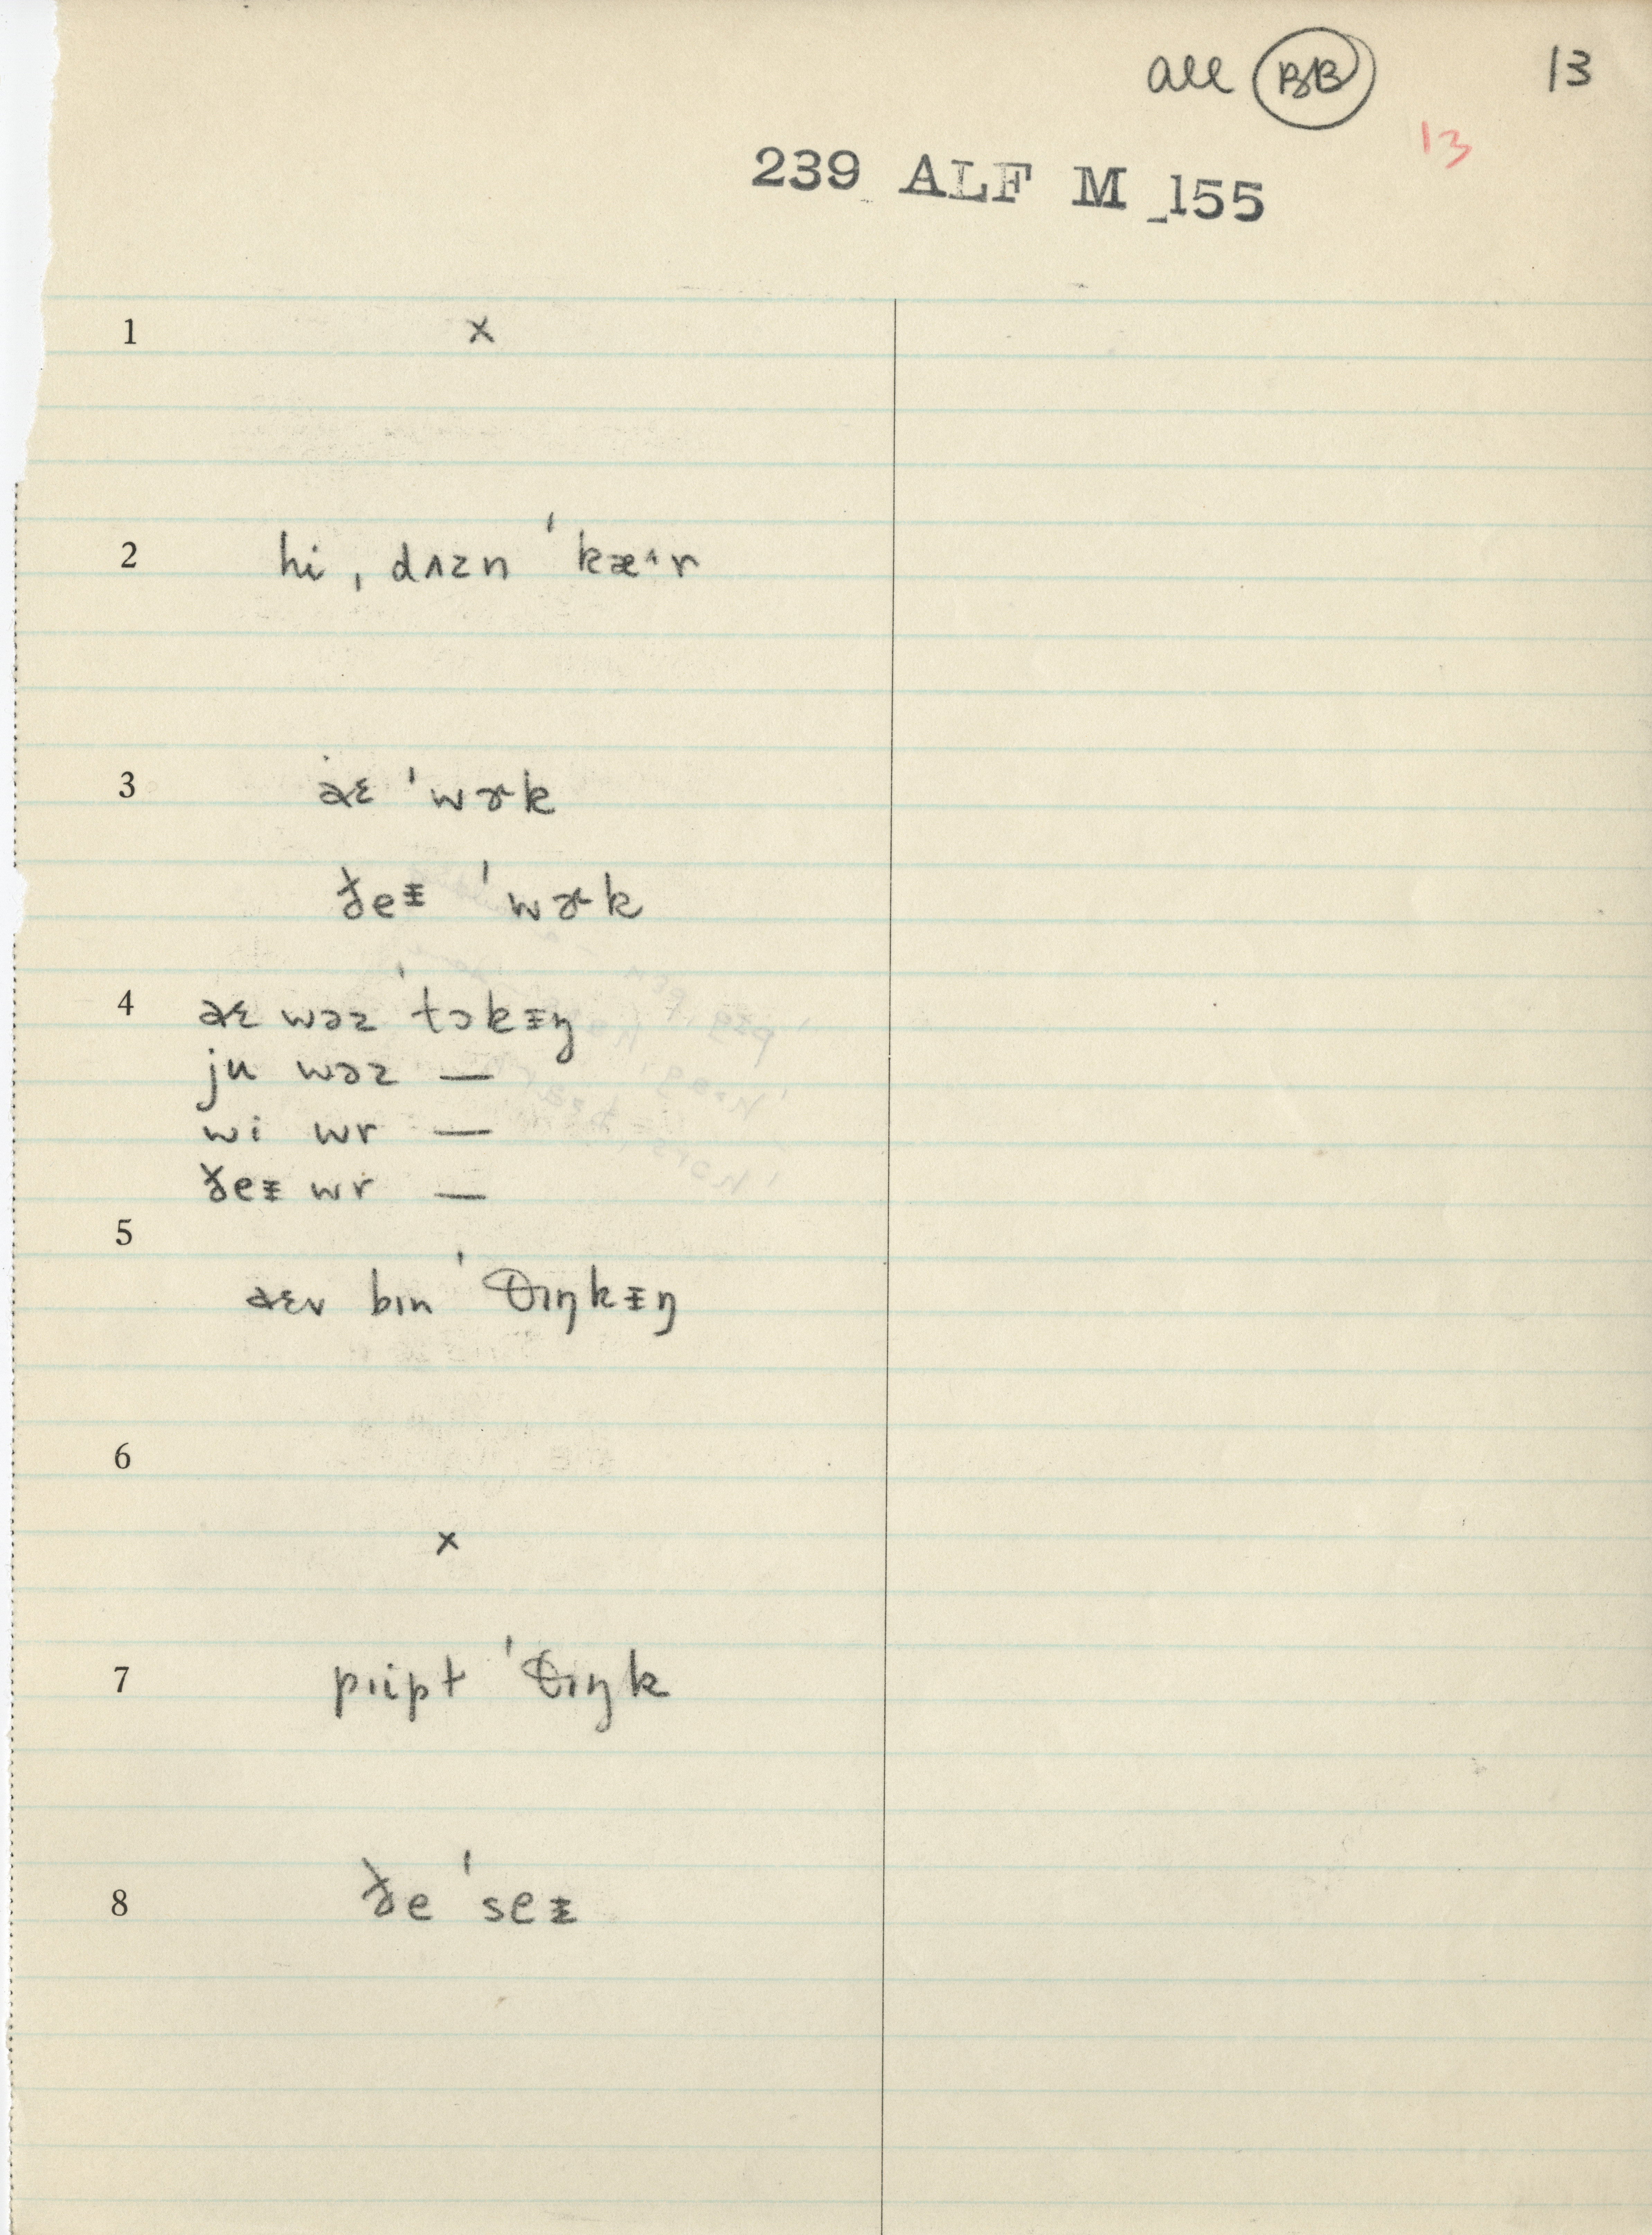 all BB 13
13
239 ALF M 155
1 x
2 hi ˌdʌzn ˈkæ˄r
3 aɛ ˈwɚk
ðeᵻ ˈwɚk
4 aɛ wəz ˈtɔkᵻŋ
ju wəz —
wi wr —
ðeᵻ wr —
5
aɛv bɪn ˈθɪŋkᵻŋ
6
x
7 pɪipt ˈθɪŋk
8 ðe ˈseᵻ